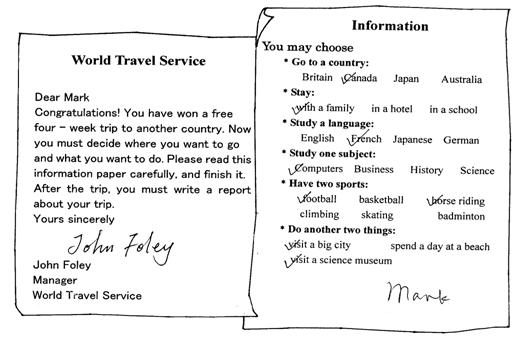 World Travel Service
Dear Mark
Congratulations! You have won a free
four - week trip to another country. Now
you must decide where you want to go
and what you want to do. Please read this
information paper carefully, and finish it.
After the trip, you must write a report
about your trip.
Yours sincerely
John Foley
John Foley
Manager
World Travel Service
Information
You may choose
* Go to a country:
Britain Canada Japan Australia
* Stay:
with a family in a hotel in a school
* Study a language:
English French Japanese German
* Study one subject:
Computers Business History Science
* Have two sports:
football basketball horse riding
climbing skating badminton
* Do another two things:
visit a big city spend a day at a beach
visit a science museum
Mark